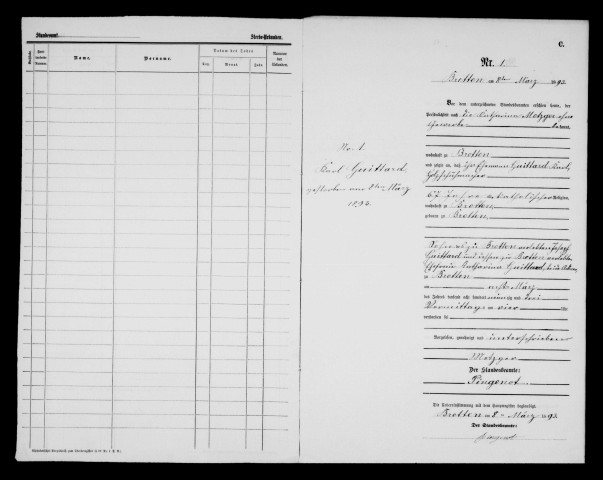 Standesamt
Sterbe-Urkunden.
Name.
Vorname.
Datum des Todes
Tag.
Monat.
Jahr.
Nummer der Urkunden.
No. 1.
Karl Guittard
gestorben am 8ten März
1893.
C.
Nr. 1
Bretten am 8ten März 1893.
Vor dem unterzeichneten Standesbeamten erschien heute, der
Persönlichkeit nach die Catharina Metzger ohne
Gewerbe bekannt,
wohnhaft zu Bretten
und zeigte an, daß ihr Ehemann Guittard Karl,
Holzschuhmacher
67 Jahre katholischer Religion,
wohnhaft zu Bretten
geboren zu Bretten
Sohn des zu Bretten verlebten Joseph
Guittard und dessen zu Bretten verlebten
Ehefrau Catharina Guittard
zu Bretten
am März
des Jahres tausend acht hundert neunzig und drei
Vormittags um vier Uhr
verstorben sei
Vorgelesen, genehmigt und unterschrieben
Metzger
Der Standesbeamte:
Pingenot.
Die Uebereinstimmung mit dem Hauptregister beglaubigt.
Bretten am 8ten März 1893.
Der Standesbeamte: